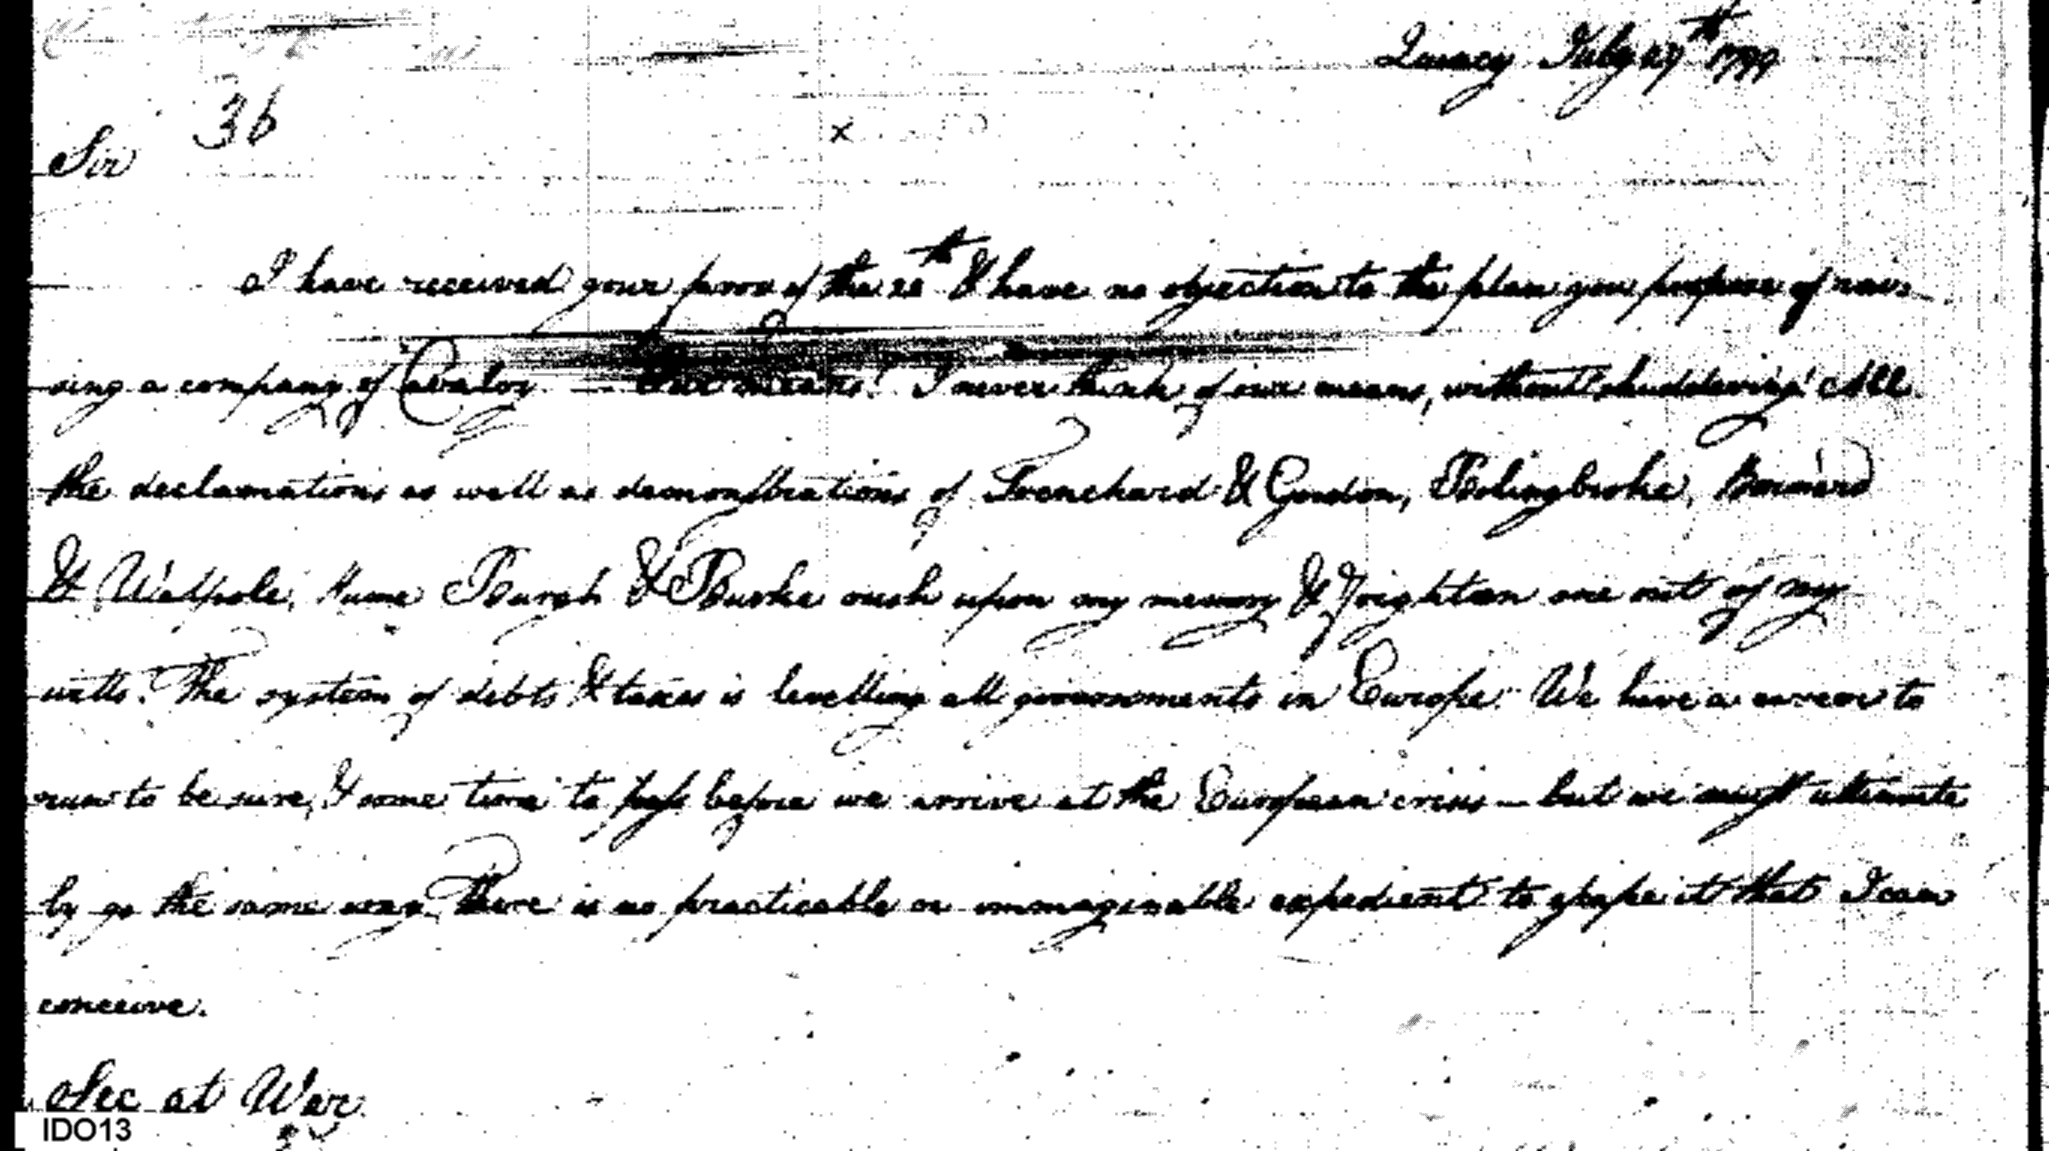 Quincy July 27th 1799
36
x
Sir
I have received your favor of the 20th & have no objection to the plan you propose of rai-
sing a company of Cavalry — Our means! I never think of our means, without shuddering! All
the declamations as well as demonstrations of Trenchard & Gordon, Bolingbroke, Barnard
& Walpole, Hume Burgh & Burke rush upon my memory & frighten me out of my
witts. The system of debts & taxes is levelling all governments in Europe. We have a career to
run to be sure, & some time to pass before we arrive at the European crisis — but we must ultimate
ly go the same way. There is no practicable or immaginable expedient to escape it that I can
conceive.
Sec at War
IDO13